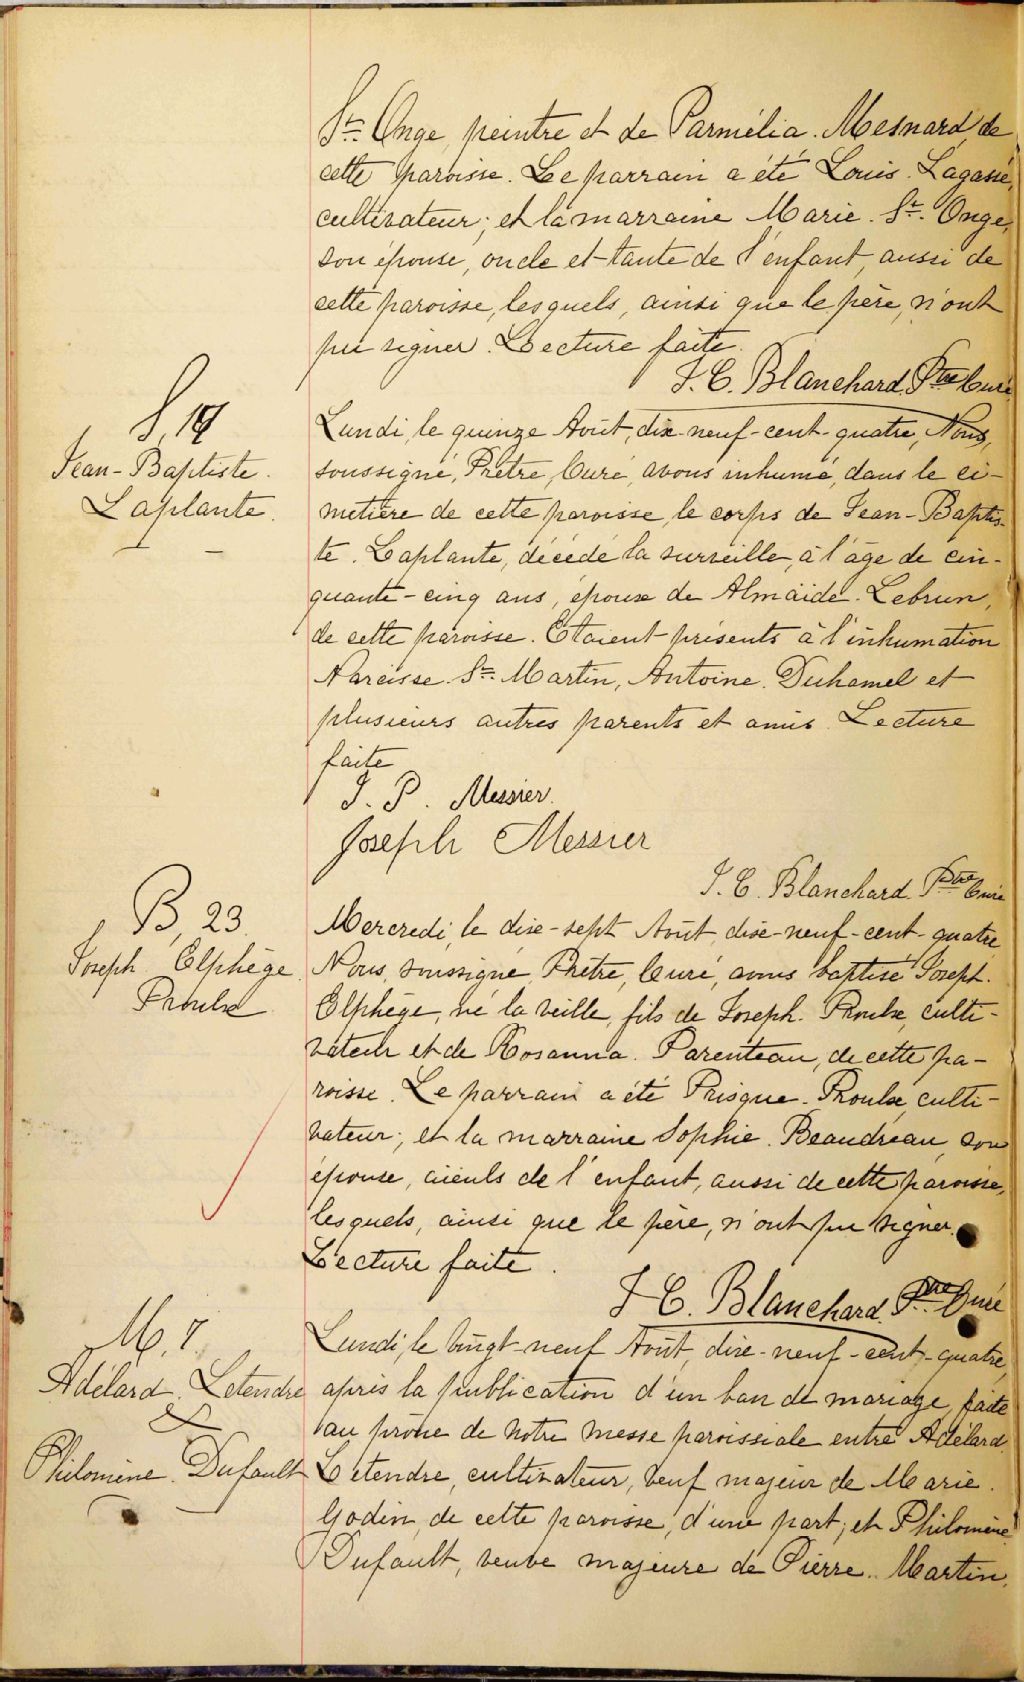 St. Onge, peintre et de Parmélia. Mesnard, de
cette paroisse. Le parrain a été Louis. Lagassé,
cultivateur; et la marraine Marie. St. Onge,
son épouse, oncle et tante de l'enfant, aussi de
cette paroisse, lesquels, ainsi que le père, n'ont
pu signer. Lecture faite.
J. C. Blanchard, Ptre Curé
S, 17
Jean-Baptiste.
Laplante.
Lundi, le quinze Août, dix-neuf-cent-quatre, Nous,
soussigné, Prêtre, Curé, avons inhumé, dans le ci-
metière de cette paroisse, le corps de Jean-Baptis-
te. Laplante, décédé la surveille, à l'âge de cin-
quante-cinq ans, époux de Almaïde. Lebrun,
de cette paroisse. Etaient présents à l'inhumation
Narcisse. St. Martin, Antoine. Duhamel et
plusieurs autres parents et amis. Lecture
faite
J. P. Messier.
Joseph Messier
J. C. Blanchard. Ptre Curé
B, 23
Joseph Elphège
Proulx
Mercredi, le dix-sept Août, dix-neuf-cent-quatre
Nous, soussigné, Prêtre, Curé, avons baptisé Joseph.
Elphège, né la veille, fils de Joseph. Proulx, culti-
vateur et de Rosanna. Parenteau, de cette pa-
roisse. Le parrain a été Prisque. Proulx, culti-
vateur; et la marraine Sophie. Beaudreau, son
épouse, aïeuls de l'enfant, aussi de cette paroisse,
lesquels, ainsi que le père, n'ont pu signer.
Lecture faite.
J. C. Blanchard. Ptre Curé
M, 7
Adélard. Letendre
&
Philomène. Dufault
Lundi, le vingt-neuf Août, dix-neuf-cent-quatre,
après la publication d'un ban de mariage, faite
au prône de notre messe paroissiale entre Adélard.
Letendre, cultivateur, veuf majeur de Marie.
Godin, de cette paroisse, d'une part; et Philomène
Dufault, veuve majeure de Pierre. Martin,